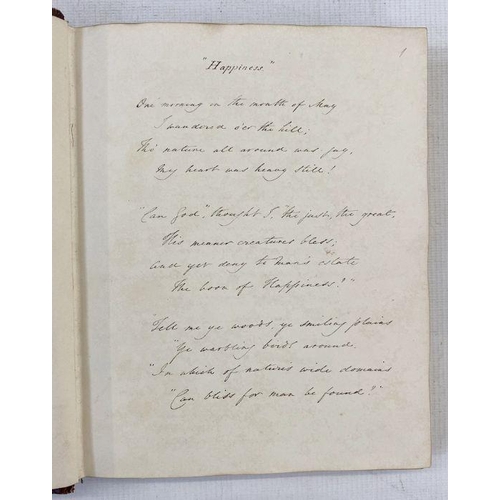 "Happiness."
1
One morning in the month of May
I wandered o'er the hill;
Tho' nature all around was gay,
My heart was heavy still!
"Can God", thought I, "the just, the great,
His meaner creatures bless;
And yet deny to man's estate
The boon of Happiness?"
"Tell me ye woods, ye smiling plains
"Ye warbling birds around.
"In which of natures wide domains
"Can bliss for man be found?"